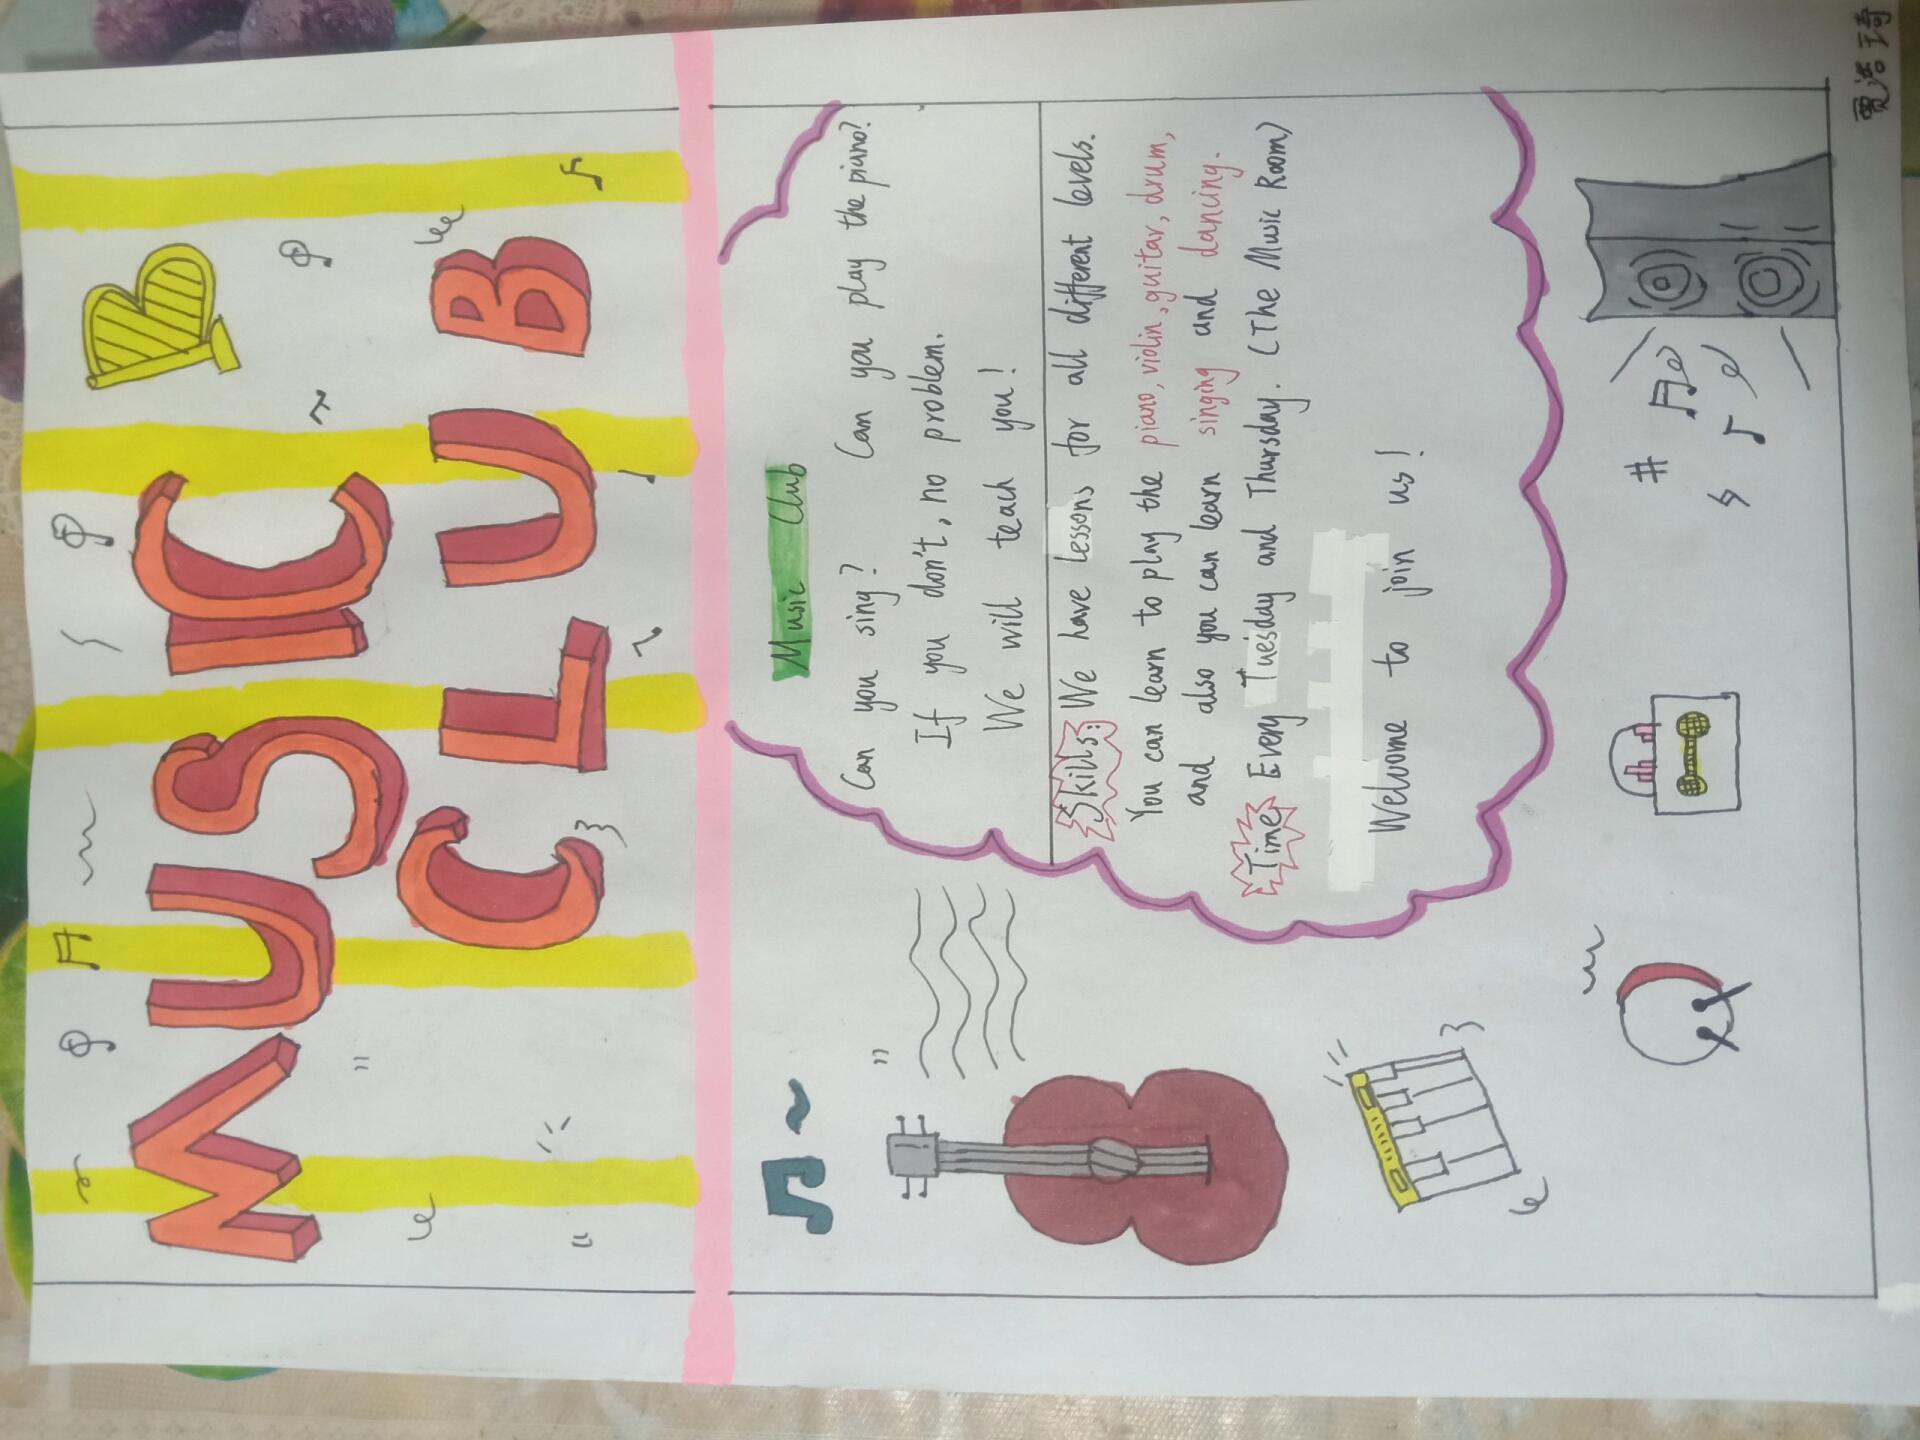 MUSIC
CLUB
Music Club
Can you sing? Can you play the piano?
If you don't, no problem.
We will teach you!
Skills: We have lessons for all different levels.
You can learn to play the piano, violin, guitar, drum,
and also you can learn singing and dancing.
Time: Every Tuesday and Thursday. (The Music Room)
Welcome to join us!
贾浩琦